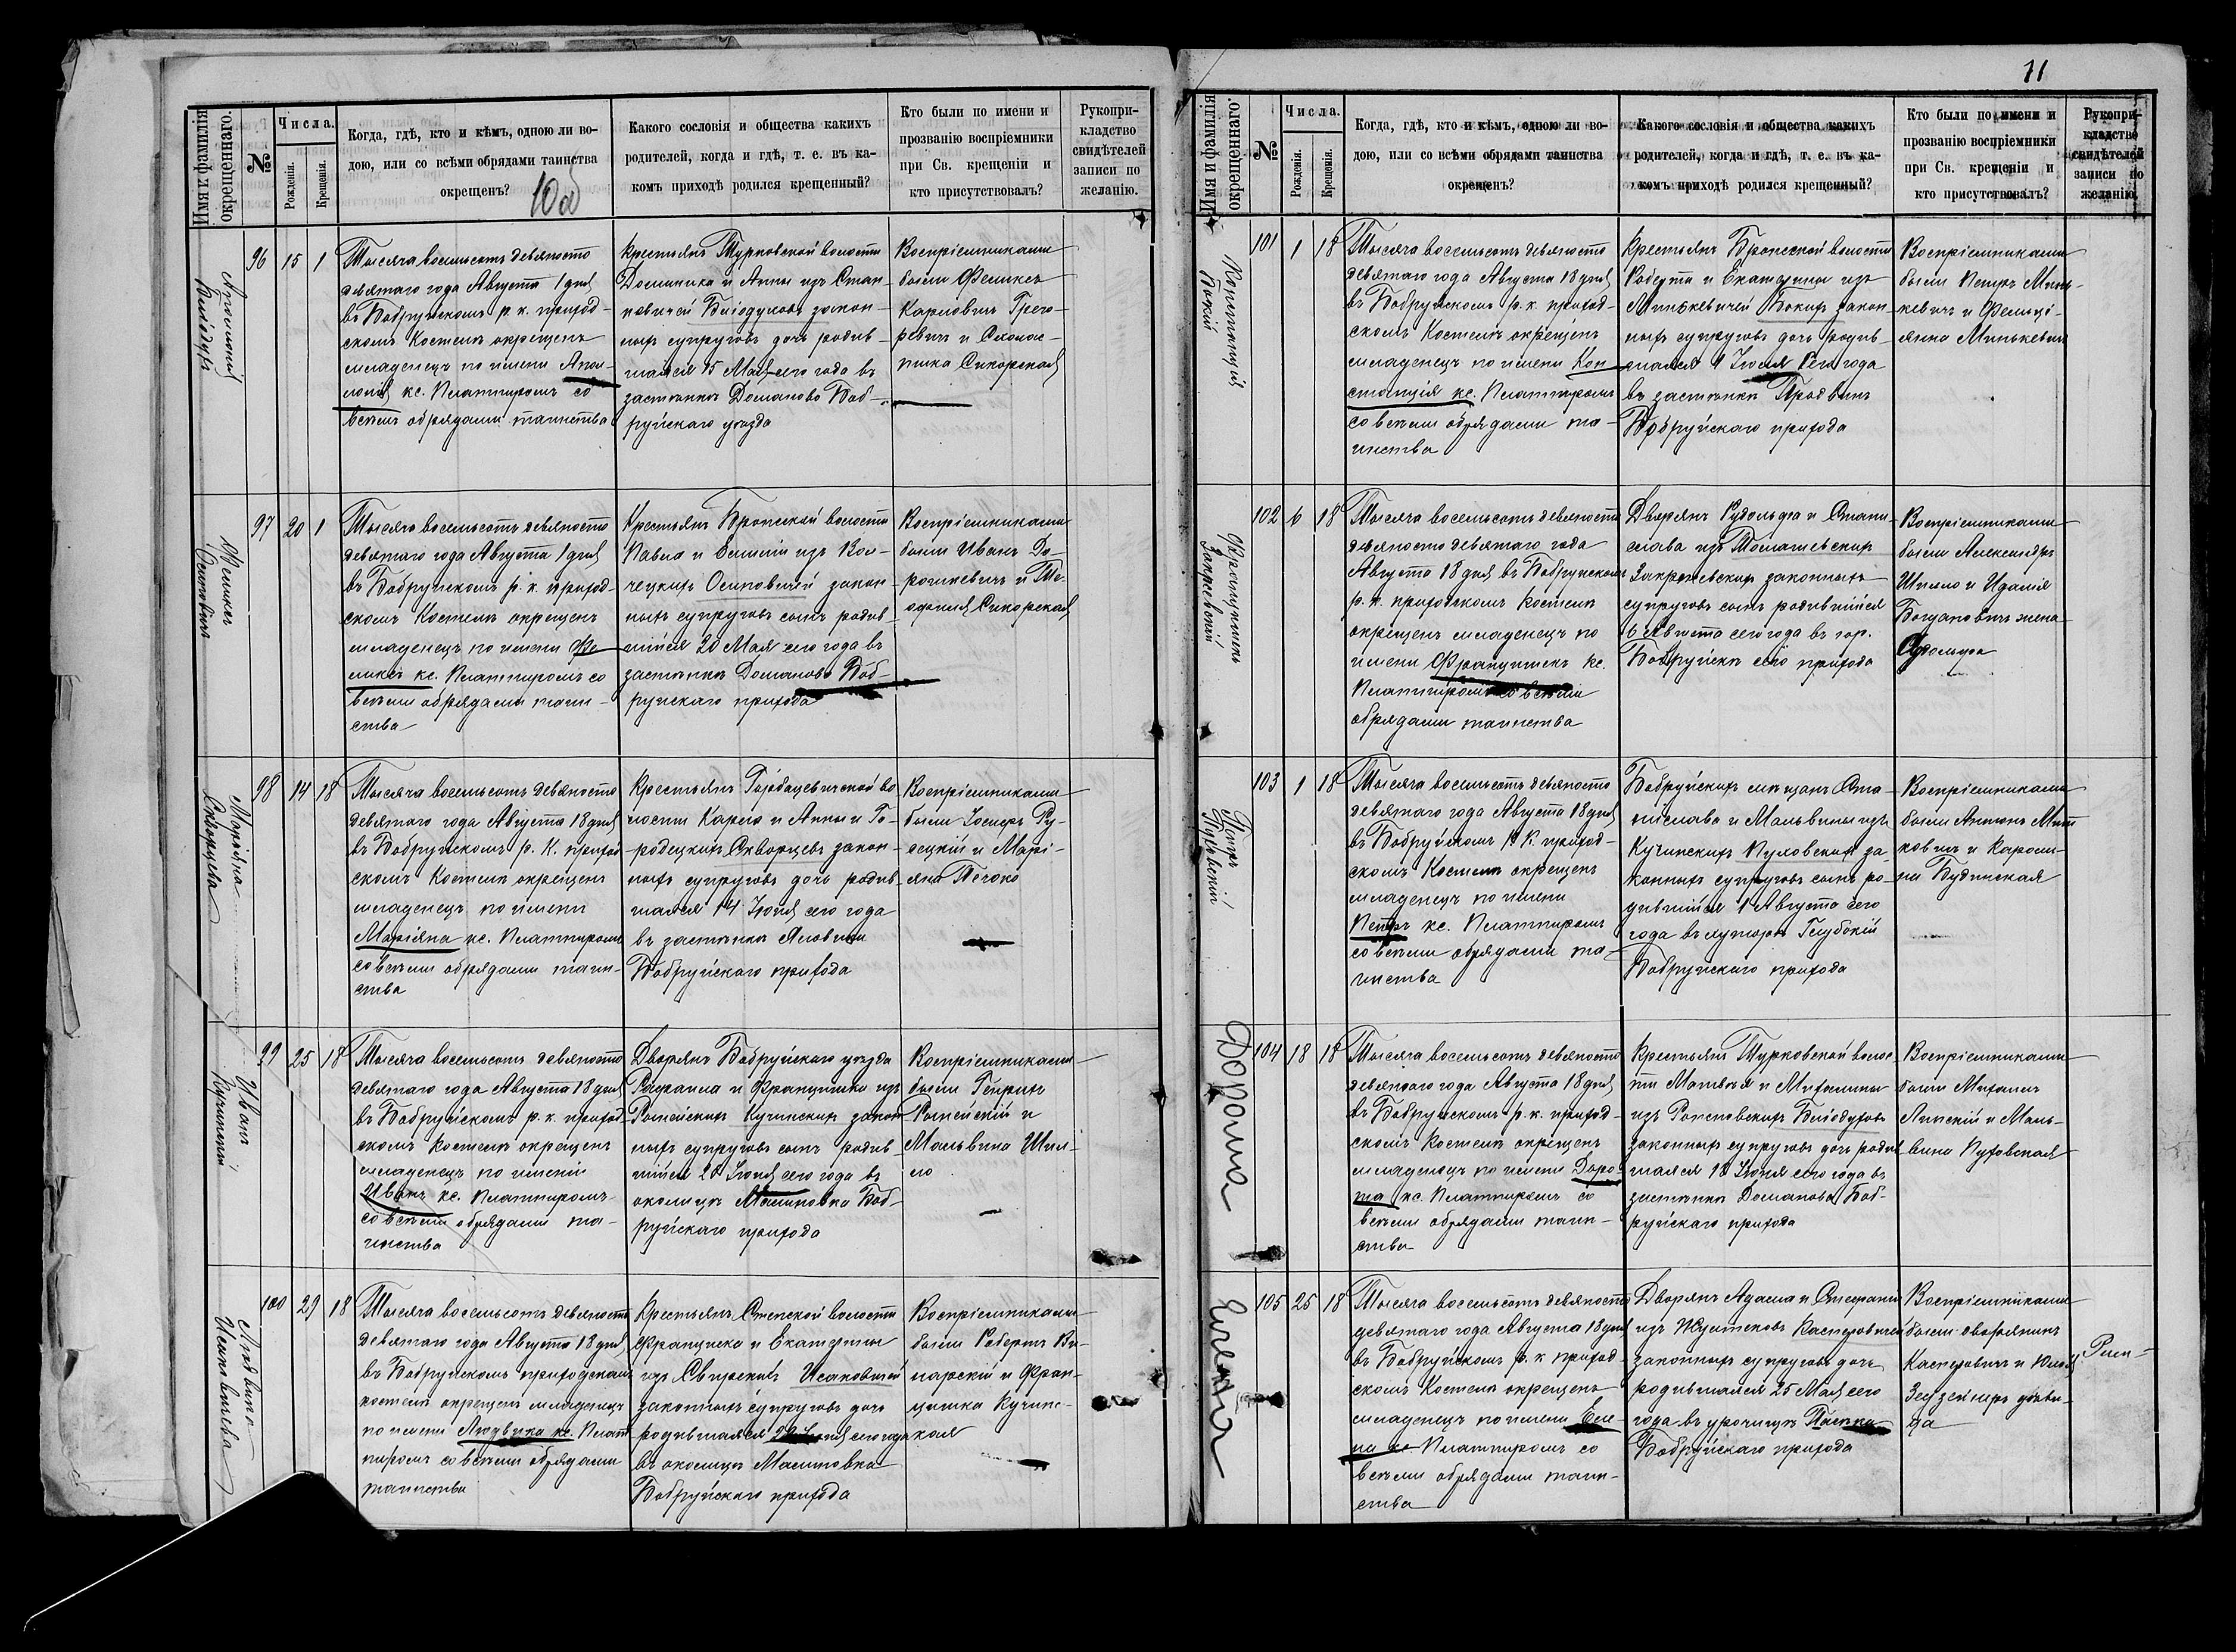 11
Имя и фамилія окрещеннаго.
№
Числа.
Рожденія.
Крещенія.
Когда, гдѣ, кто и кѣмъ, одною ли во-
дою, или со всѣми обрядами таинства
окрещенъ?
Какого сословія и общества какихъ
родителей, когда и гдѣ, т. е. въ ка-
комъ приходѣ родился крещенный?
Кто были по имени и
прозванію воспріемники
при Св. крещеніи и
кто присутствовалъ?
Рукопри-
кладство
свидѣтелей
записи по
желанію.
96 15 1
Тысяча восемьсотъ девяносто
девятаго года Августа 1 дня
въ Бобруйскомъ р. к. приход-
скомъ Костелѣ окрещенъ
младенецъ по имени Апол-
лонія кс. Платтиромъ со
всѣми обрядами таинства
Крестьянъ Турковской волости
Доминика и Анны изъ Стан-
кевичей закон-
ныхъ супруговъ дочь родив-
шаяся 15 Мая сего года въ
застѣнкѣ Доманово Боб-
руйскаго уѣзда
Воспріемниками
были Феликсъ
Карловичъ Грего-
ревич и
Сикорская
Феликсъ
Осиповичъ
97 20 1
Тысяча восемьсотъ девяносто
девятаго года Августа 1 дня
въ Бобруйскомъ р. к. приход-
скомъ Костелѣ окрещенъ
младенецъ по имени Фе-
ликсъ кс. Платтиромъ со
всѣми обрядами таин-
ства
Крестьянъ Брожской волости
Павла и Емиліи изъ Вол-
чецкихъ Осиповичей закон-
ныхъ супруговъ сынъ родив-
шійся 20 Мая сего года въ
застѣнкѣ Доманово Боб-
руйскаго прихода
Воспріемниками
были Иванъ До-
рошкевичъ и Те-
офилія Сикорская
Маріяна
Скворцева
98 14 18
Тысяча восемьсотъ девяносто
девятаго года Августа 18 дня
въ Бобруйскомъ р. К. приход
скомъ Костелѣ окрещенъ
младенецъ по имени
Маріяна кс. Платтиромъ
со всѣми обрядами таин-
ства
Крестьянъ Горбацевичской во
лости Карла и Анны и Го-
родецкихъ Скворцевъ закон-
ныхъ супруговъ дочь родив
шаяся 14 Іюня сего года
въ застѣнкѣ
Бобруйскаго прихода
Воспріемниками
были Іосифъ Ру-
сецкій и Марі-
яна
Иванъ
Кучинскій
99 25 18
Тысяча восемьсотъ девяносто
девятаго года Августа 18 дня
въ Бобруйскомъ р. к. приход
скомъ Костелѣ окрещенъ
младенецъ по имени
Иванъ кс. Платтиромъ
со всѣми обрядами та-
инства
Дворянъ Бобруйскаго уѣзда
Рафаила и Францишки изъ
Кучинскихъ закон
ныхъ супруговъ сынъ родив
шійся Іюня сего года въ
околицѣ Масиновка Боб-
руйскаго прихода
Воспріемниками
были Генрихъ
и
Мальвина Шпил-
ло
Людвика
100 29 18
Тысяча восемьсотъ девяносто
девятаго года Августа 18 дня
въ Бобруйскомъ приходскомъ
костелѣ окрещенъ младенецъ
по имени Людвика кс. Плат
тиромъ со всѣми обрядами
таинства
Крестьянъ волости
Франциска и Екатерины
изъ Свирскихъ Исаковичей
законныхъ супруговъ дочь
родившаяся сего года
въ околицѣ Масиновка
Бобруйскаго прихода
Воспріемниками
были Робертъ
и Фран-
цишка Кучинс-
кая
Имя и фамилія окрещеннаго.
№
Числа.
Рожденія.
Крещенія.
Когда, гдѣ, кто и кѣмъ, одною ли во-
дою, или со всѣми обрядами таинства
окрещенъ?
Какого сословія и общества какихъ
родителей, когда и гдѣ, т. е. въ ка-
комъ приходѣ родился крещенный?
Кто были по имени и
прозванію воспріемники
при Св. крещеніи и
кто присутствовалъ?
Рукопри-
кладство
свидѣтелей
записи по
желанію.
Констанція
101 1 18
Тысяча восемьсотъ девяносто
девятаго года Августа 18 дня
въ Бобруйскомъ р. к. приход-
скомъ Костелѣ окрещенъ
младенецъ по имени Кон
станція кс. Платтиромъ
со всѣми обрядами та-
инства
Крестьянъ Брожской волости
Роберта и Екатерины изъ
закон
ныхъ супруговъ дочь родив
шаяся 1 Іюля сего года
въ застѣнкѣ
Бобруйскаго прихода
Воспріемниками
были Петръ Минь-
кевичъ и Фелиці-
янна Минькевичъ
Францишекъ
102 6 18
Тысяча восемьсотъ девяносто
девяносто девятаго года
Августа 18 дня въ Бобруйскомъ
р. к. приходскомъ Костелѣ
окрещенъ младенецъ по
имени Францишекъ кс.
Платтиромъ со всѣми
обрядами таинства
Дворянъ Рудольфа и Стани-
слава изъ Томашевскихъ
Закржевскихъ законныхъ
супруговъ сынъ родившійся
6 Августа сего года въ гор.
Бобруйскѣ сего прихода
Воспріемниками
были Александръ
Шпилло и Идалія
Богдановичъ жена
Рудольфа
Петръ
103 1 18
Тысяча восемьсотъ девяносто
девятаго года Августа 18 дня
въ Бобруйскомъ р. К. приход-
скомъ Костелѣ окрещенъ
младенецъ по имени
Петръ кс. Платтиромъ
со всѣми обрядами та-
инства
Бобруйскихъ мѣщанъ Ста-
нислава и Мальвины изъ
Кучинскихъ Пуховскихъ за-
конныхъ супруговъ сынъ ро-
дившійся 1 Августа сего
года въ хуторѣ Глубокій
Бобруйскаго прихода
Воспріемниками
были Антонъ Мит
ковичъ и Кароли-
на Будзинская
Дорота
104 18 18
Тысяча восемьсотъ девяносто
девятаго года Августа 18 дня
въ Бобруйскомъ р. к. приход-
скомъ Костелѣ окрещенъ
младенецъ по имени Доро-
та кс. Платтиромъ со
всѣми обрядами таин-
ства
Крестьянъ Турковской волос-
ти Матвѣя и Михалины
изъ
законныхъ супруговъ дочь родив
шаяся 18 Іюня сего года въ
застѣнкѣ Доманово Боб-
руйскаго прихода
Воспріемниками
были Михаилъ
Липскій и Маль-
вина Пуховская
Елена
105 25 18
Тысяча восемьсотъ девяносто
девятаго года Августа 18 дня
въ Бобруйскомъ р. к. приход-
скомъ Костелѣ окрещенъ
младенецъ по имени Еле-
на кс Платтиромъ со
всѣми обрядами таин-
ства
Дворянъ Адама и Стефаніи
изъ Касперовичей
законныхъ супруговъ дочь
родившаяся 25 Мая сего
года въ урочищѣ
Бобруйскаго прихода
Воспріемниками
были дворянинъ
Касперовичъ и
дѣви-
ца